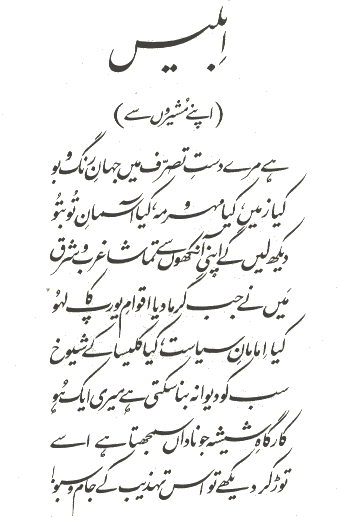 اِبلیس
(اپنے مُشیروں سے)
ہے مرے دستِ تصرّف میں جہانِ رنگ و بو
کیا زمیں، کیا مہر و مہ، کیا آسمانِ تُو بتُو
دیکھ لیں گے اپنی آنکھوں سے تماشا غرب و شرق
مَیں نے جب گرما دیا اقوامِ یورپ کا لہُو
کیا اِمامانِ سیاست، کیا کلیسا کے شیوخ
سب کو دیوانہ بنا سکتی ہے میری ایک ہُو
کارگاہِ شیشہ جو ناداں سمجھتا ہے اسے
توڑ کر دیکھے تو اس تہذیب کے جام و سبو!